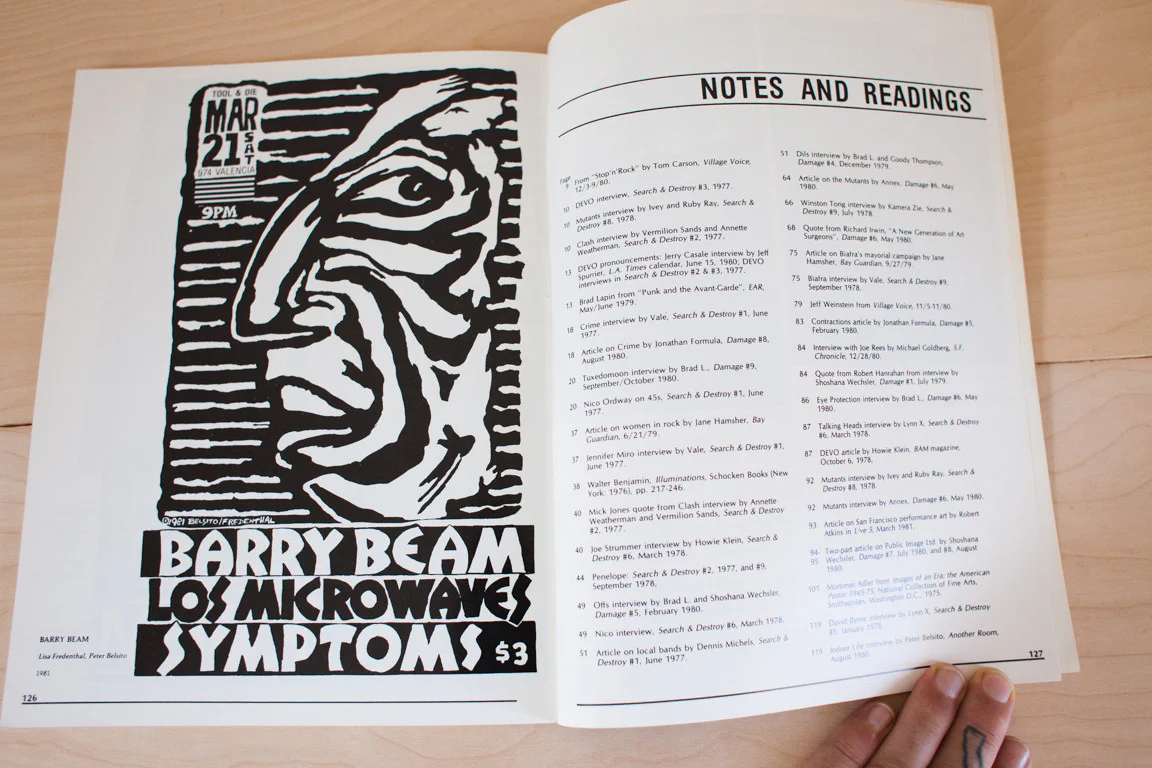 TOOL & DIE
MAR
21 SAT
974 VALENCIA
9PM
©1981 BELSITO/FREDENTHAL
BARRY BEAM
LOS MICROWAVES
SYMPTOMS $3
BARRY BEAM
Lisa Fredenthal, Peter Belsito
1981
126
NOTES AND READINGS
Page
9 From "Stop'n'Rock" by Tom Carson, Village Voice,
12/3-9/80.
10 DEVO interview, Search & Destroy #3, 1977.
10 Mutants interview by Ivey and Ruby Ray, Search &
Destroy #8, 1978.
10 Clash interview by Vermilion Sands and Annette
Weatherman, Search & Destroy #2, 1977.
13 DEVO pronouncements: Jerry Casale interview by Jeff
Spurrier, L.A. Times calendar, June 15, 1980; DEVO
interviews in Search & Destroy #2 & #3, 1977.
13 Brad Lapin from "Punk and the Avant-Garde", EAR,
May/June 1979.
18 Crime interview by Vale, Search & Destroy #1, June
1977.
18 Article on Crime by Jonathan Formula, Damage #8,
August 1980.
20 Tuxedomoon interview by Brad L., Damage #9,
September/October 1980.
20 Nico Ordway on 45s, Search & Destroy #1, June
1977.
37 Article on women in rock by Jane Hamsher, Bay
Guardian, 6/21/79.
37 Jennifer Miro interview by Vale, Search & Destroy #1,
June 1977.
38 Walter Benjamin, Illuminations, Schocken Books (New
York: 1976), pp. 217-246.
40 Mick Jones quote from Clash interview by Annette
Weatherman and Vermilion Sands, Search & Destroy
#2, 1977.
40 Joe Strummer interview by Howie Klein, Search &
Destroy #6, March 1978.
44 Penelope: Search & Destroy #2, 1977, and #9,
September 1978.
49 Offs interview by Brad L. and Shoshana Wechsler,
Damage #5, February 1980.
49 Nico interview, Search & Destroy #6, March 1978.
51 Article on local bands by Dennis Michels, Search &
Destroy #1, June 1977.
51 Dils interview by Brad L. and Goody Thompson,
Damage #4, December 1979.
64 Article on the Mutants by Annex, Damage #6, May
1980.
66 Winston Tong interview by Kamera Zie, Search &
Destroy #9, July 1978.
68 Quote from Richard Irwin, "A New Generation of Art
Surgeons", Damage #6, May 1980.
75 Article on Biafra's mayorial campaign by Jane
Hamsher, Bay Guardian, 9/27/79.
75 Biafra interview by Vale, Search & Destroy #9,
September 1978.
79 Jeff Weinstein from Village Voice, 11/5-11/80.
83 Contractions article by Jonathan Formula, Damage #5,
February 1980.
84 Interview with Joe Rees by Michael Goldberg, S.F.
Chronicle, 12/28/80.
84 Quote from Robert Hanrahan from interview by
Shoshana Wechsler, Damage #1, July 1979.
86 Eye Protection interview by Brad L., Damage #6, May
1980.
87 Talking Heads interview by Lynn X, Search & Destroy
#6, March 1978.
87 DEVO article by Howie Klein, BAM magazine,
October 6, 1978.
92 Mutants interview by Ivey and Ruby Ray, Search &
Destroy #8, 1978.
92 Mutants interview by Annex, Damage #6, May 1980.
93 Article on San Francisco performance art by Robert
Atkins in Live 5, March 1981.
94- Two-part article on Public Image Ltd. by Shoshana
95 Wechsler, Damage #7, July 1980, and #8, August
1980.
101 Mortimer Adler from Images of an Era: the American
Poster 1945-75, National Collection of Fine Arts,
Smithsonian, Washington D.C., 1975.
119 David Byrne interview by Lynn X, Search & Destroy
#5, January 1978.
Indoor Life interview by Peter Belsito, Another Room,
August 1980.
127